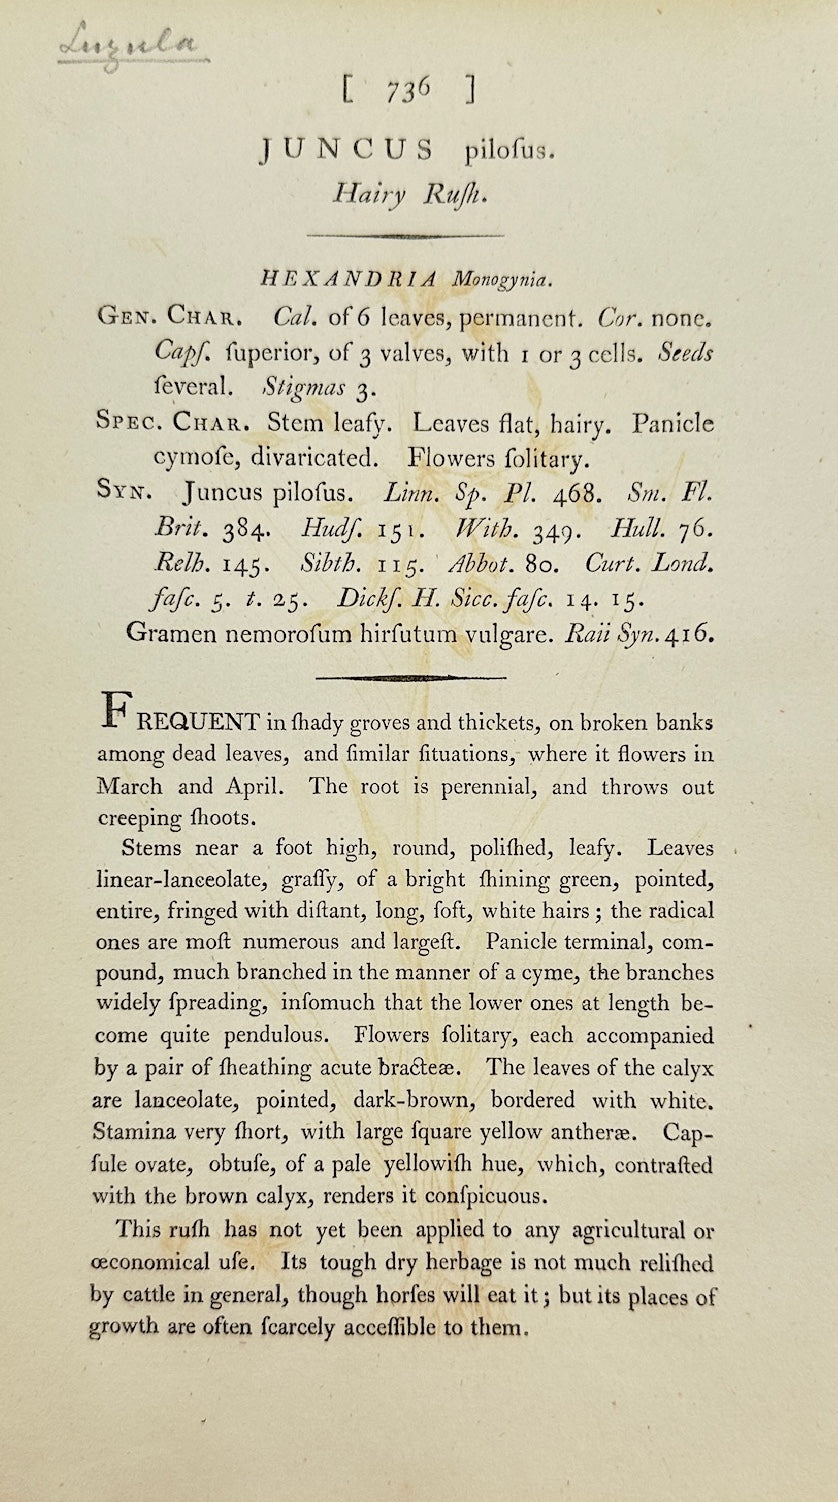 Luzula
[ 736 ]
JUNCUS piloſus.
Hairy Ruſh.
HEXANDRIA Monogynia.
GEN. CHAR. Cal. of 6 leaves, permanent. Cor. none.
Capſ. ſuperior, of 3 valves, with 1 or 3 cells. Seeds
ſeveral. Stigmas 3.
SPEC. CHAR. Stem leafy. Leaves flat, hairy. Panicle
cymoſe, divaricated. Flowers ſolitary.
SYN. Juncus piloſus. Linn. Sp. Pl. 468. Sm. Fl.
Brit. 384. Hudſ. 151. With. 349. Hull. 76.
Relh. 145. Sibth. 115. Abbot. 80. Curt. Lond.
faſc. 5. t. 25. Dickſ. H. Sicc. faſc. 14. 15.
Gramen nemoroſum hirſutum vulgare. Raii Syn. 416.
FREQUENT in ſhady groves and thickets, on broken banks
among dead leaves, and ſimilar ſituations, where it flowers in
March and April. The root is perennial, and throws out
creeping ſhoots.
Stems near a foot high, round, poliſhed, leafy. Leaves
linear-lanceolate, graſſy, of a bright ſhining green, pointed,
entire, fringed with diſtant, long, ſoft, white hairs; the radical
ones are moſt numerous and largeſt. Panicle terminal, com-
pound, much branched in the manner of a cyme, the branches
widely ſpreading, inſomuch that the lower ones at length be-
come quite pendulous. Flowers ſolitary, each accompanied
by a pair of ſheathing acute bracteæ. The leaves of the calyx
are lanceolate, pointed, dark-brown, bordered with white.
Stamina very ſhort, with large ſquare yellow antheræ. Cap-
ſule ovate, obtuſe, of a pale yellowiſh hue, which, contraſted
with the brown calyx, renders it conſpicuous.
This ruſh has not yet been applied to any agricultural or
œconomical uſe. Its tough dry herbage is not much reliſhed
by cattle in general, though horſes will eat it; but its places of
growth are often ſcarcely acceſſible to them.